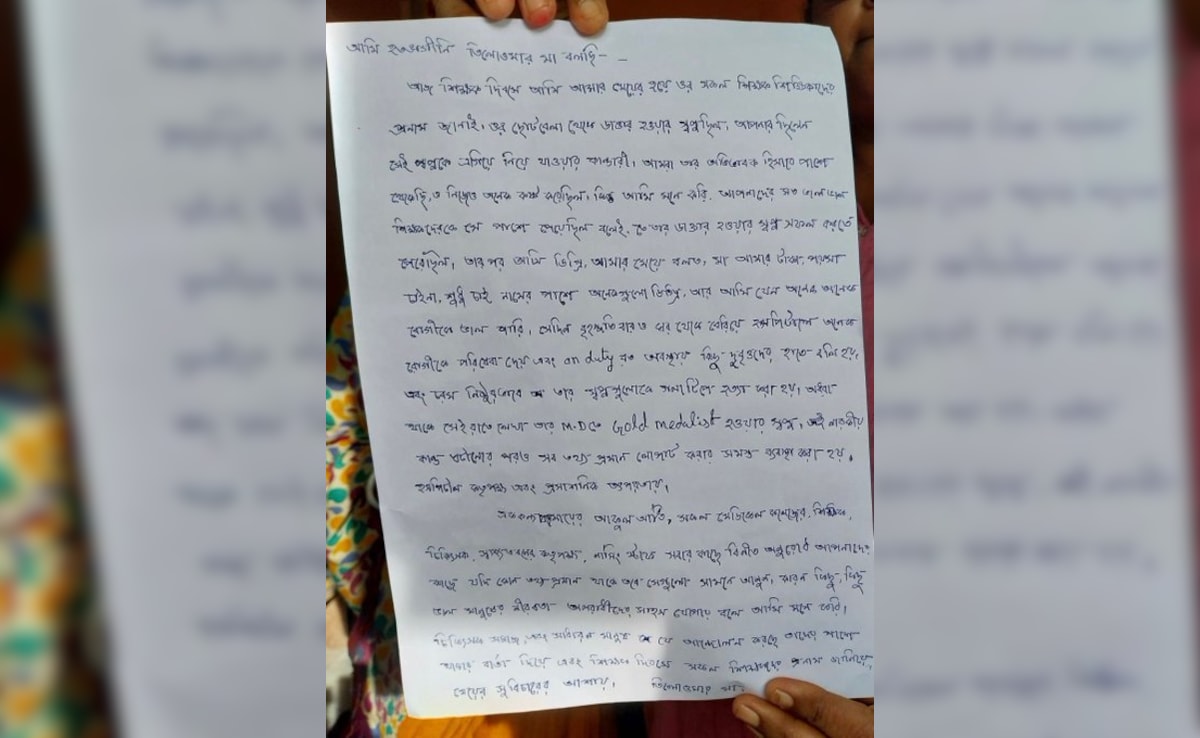 আমি হতভাগীনি তিলোত্তমার মা বলছি – –
আজ শিক্ষক দিবসে আমি আমার মেয়ের হয়ে ওর সকল শিক্ষক শিক্ষিকাদের
প্রনাম জানাই। ওর ছোটবেলা থেকে ডাক্তার হওয়ার স্বপ্ন ছিল। আপনারা ছিলেন
সেই স্বপ্নকে এগিয়ে নিয়ে যাওয়ার কান্ডারী। আমরা তার অভিভাবক হিসাবে পাশে
থেকেছি, ও নিজেও অনেক কষ্ট করেছিল। কিন্তু আমি মনে করি, আপনাদের মত ভাল ভাল
শিক্ষকদেরকে সে পাশে পেয়েছিল বলেই, তার ডাক্তার হওয়ার স্বপ্ন সফল করতে
পেরেছিল, তারপর আমি ডিগ্রি, আমার মেয়ে বলত, মা আমার টাকা, পয়সা
চাইনা, শুধু চাই নামের পাশে অনেকগুলো ডিগ্রি, আর আমি যেন অনেক অনেক
রোগীকে ভাল পারি। সেদিন বৃহস্পতিবারও ঘর থেকে বেরিয়ে হসপিটালে অনেক
রোগীকে পরিষেবা দেয় এবং on duty রত অবস্থায় কিছু দুর্বৃত্তদের হাতে বলি হয়,
এবং চরম নিষ্ঠুরভাবে তার স্বপ্নগুলোকে গলা টিপে হত্যা করা হয়। অধরা
থাকে সেই রাতে লেখা তার M.D তে Gold medalist হওয়ার স্বপ্ন, এই নারকীয়
কান্ড ঘটানোর পরও সব তথ্য প্রমান লোপাট করার সমস্ত ব্যবস্থা করা হয়,
হসপিটাল কতৃপক্ষ এবং প্রশাসনিক তৎপরতায়।
মায়ের আকুল আর্তি, সকল মেডিকেল কলেজের, শিক্ষক,
চিকিৎসক, স্বাস্থ্যভবনের কতৃপক্ষ, নার্সিং স্টাফ সবার কাছে বিনীত অনুরোধ আপনাদের
কাছে যদি কোন তথ্য প্রমান থাকে তবে সেগুলো সামনে আনুন, কারন কিছু, কিছু
ভাল মানুষের নীরবতা অপরাধীদের সাহস যোগায় বলে আমি মনে করি।
চিকিৎসক সমাজ, এবং সাধারন মানুষ যে আন্দোলন করছে তাদের পাশে
থাকার বার্তা দিয়ে এবং শিক্ষক দিবসে সকল শিক্ষকদের প্রনাম জানিয়ে,
মেয়ের সুবিচারের আশায়। তিলোত্তমার মা